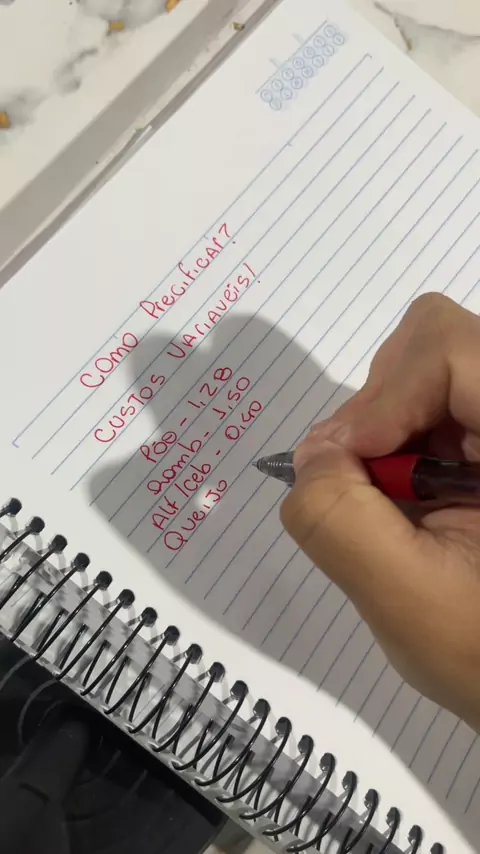 COMO PRECIFICAR?
CUSTOS VARIAVEIS!
PÃO - 1,28
2omb - 1,50
Alf/ceb - 0,40
QUEIJO